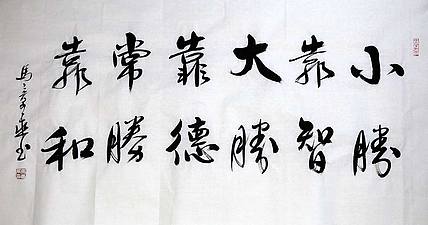 小勝
靠智
大勝
靠德
常勝
靠和